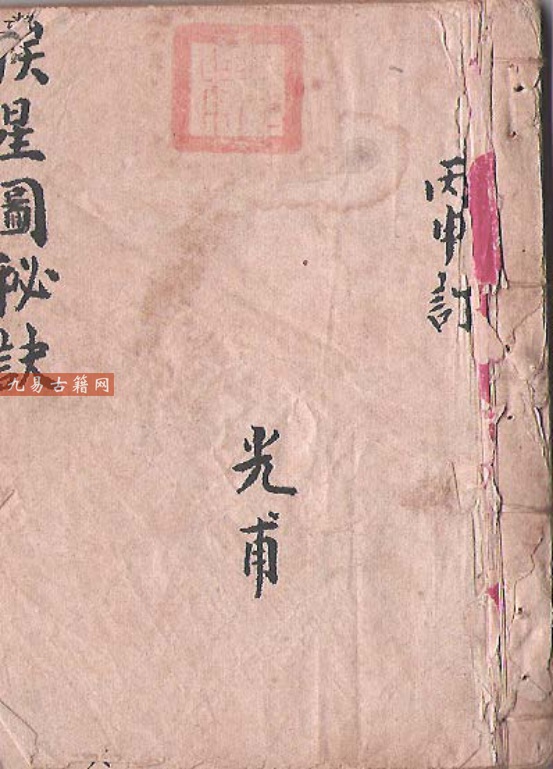 丙申訂
光甫
星圖秘訣
九易古籍网